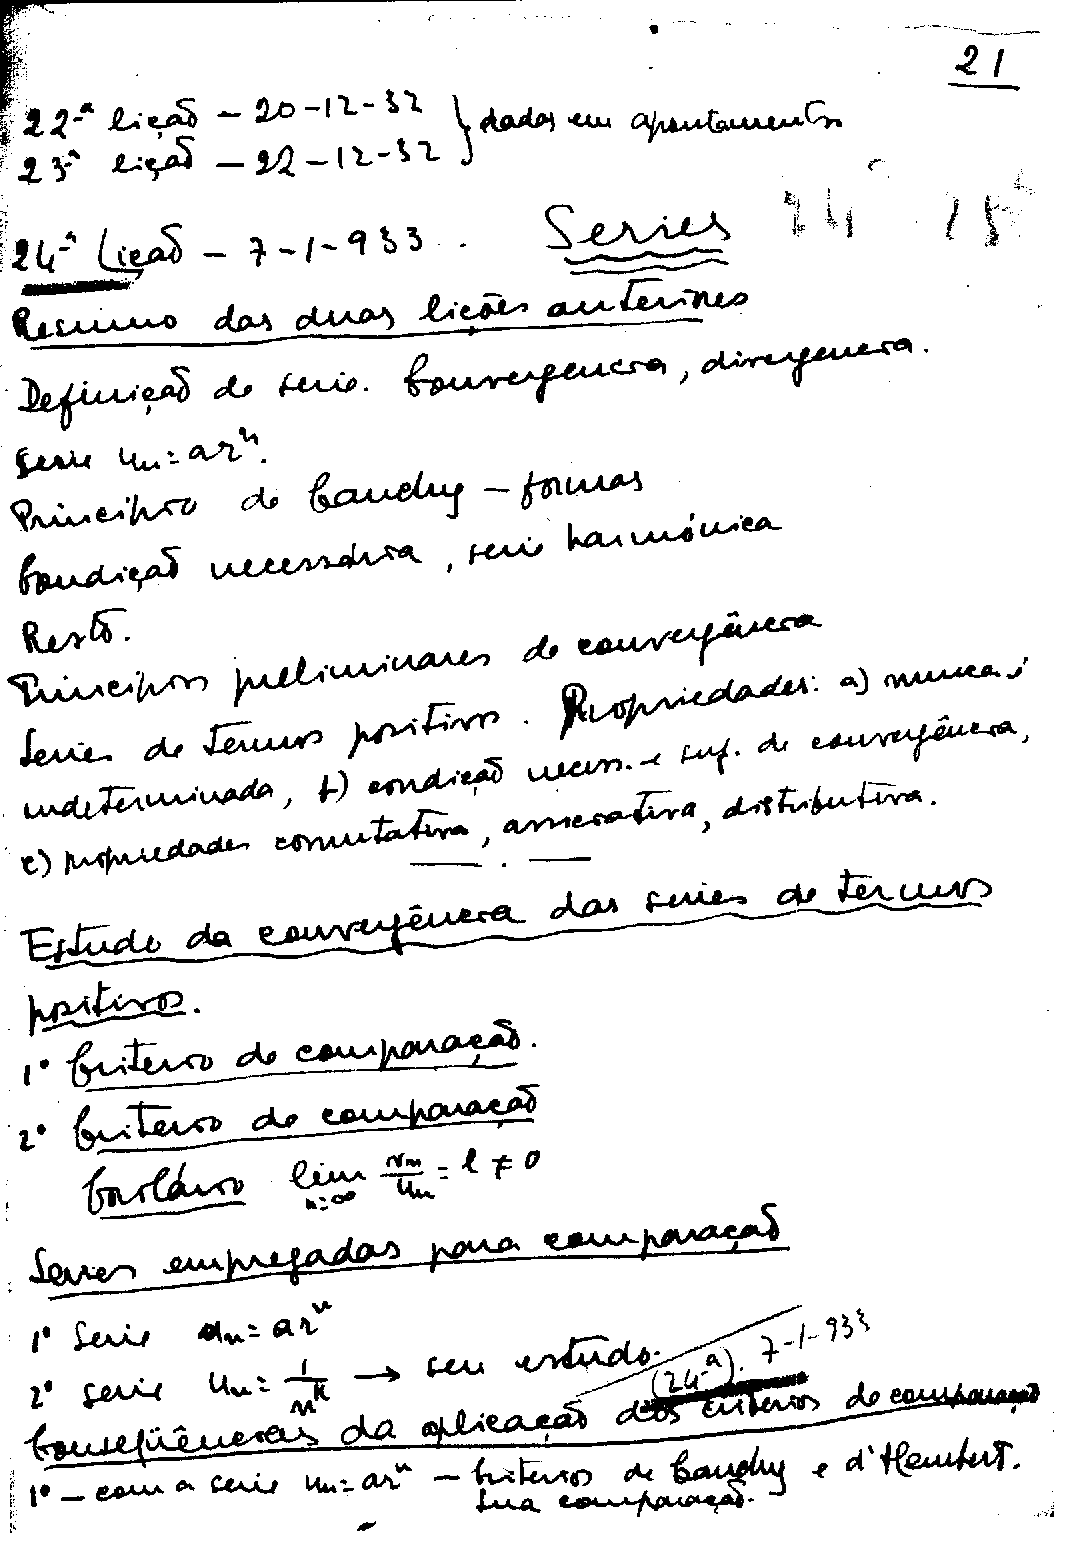 21
22-ª lição - 20-12-32 } dadas em apontamentos
23ª lição - 22-12-32
24-ª Lição - 7-1-933. Series 24 25
Resumo das duas lições anteriores
Definição de serie. Convergencia, divergencia.
Serie uₙ=arⁿ.
Principio de Cauchy - formas
Condição necessária, serie harmónica
Resto.
Principios preliminares de convergência
Series de termos positivos. Propriedades: a) nunca é
indeterminada, b) condição necess. e suf. de convergência,
c) propriedades comutativa, associativa, distributiva.
Estudo da convergência das series de termos
positivos.
1º Criterio de comparação.
2º Criterio de comparação
Corolário lim n=∞ vₙ/uₙ = l ≠ 0
Series empregadas para comparação
1º Serie uₙ=arⁿ
2º serie uₙ=1/nᵏ → seu estudo.
(24-ª). 7-1-933
Conseqüências da aplicação dos criterios de comparação
1º - com a serie uₙ=arⁿ - Criterios de Cauchy e d'Alembert.
Sua comparação.